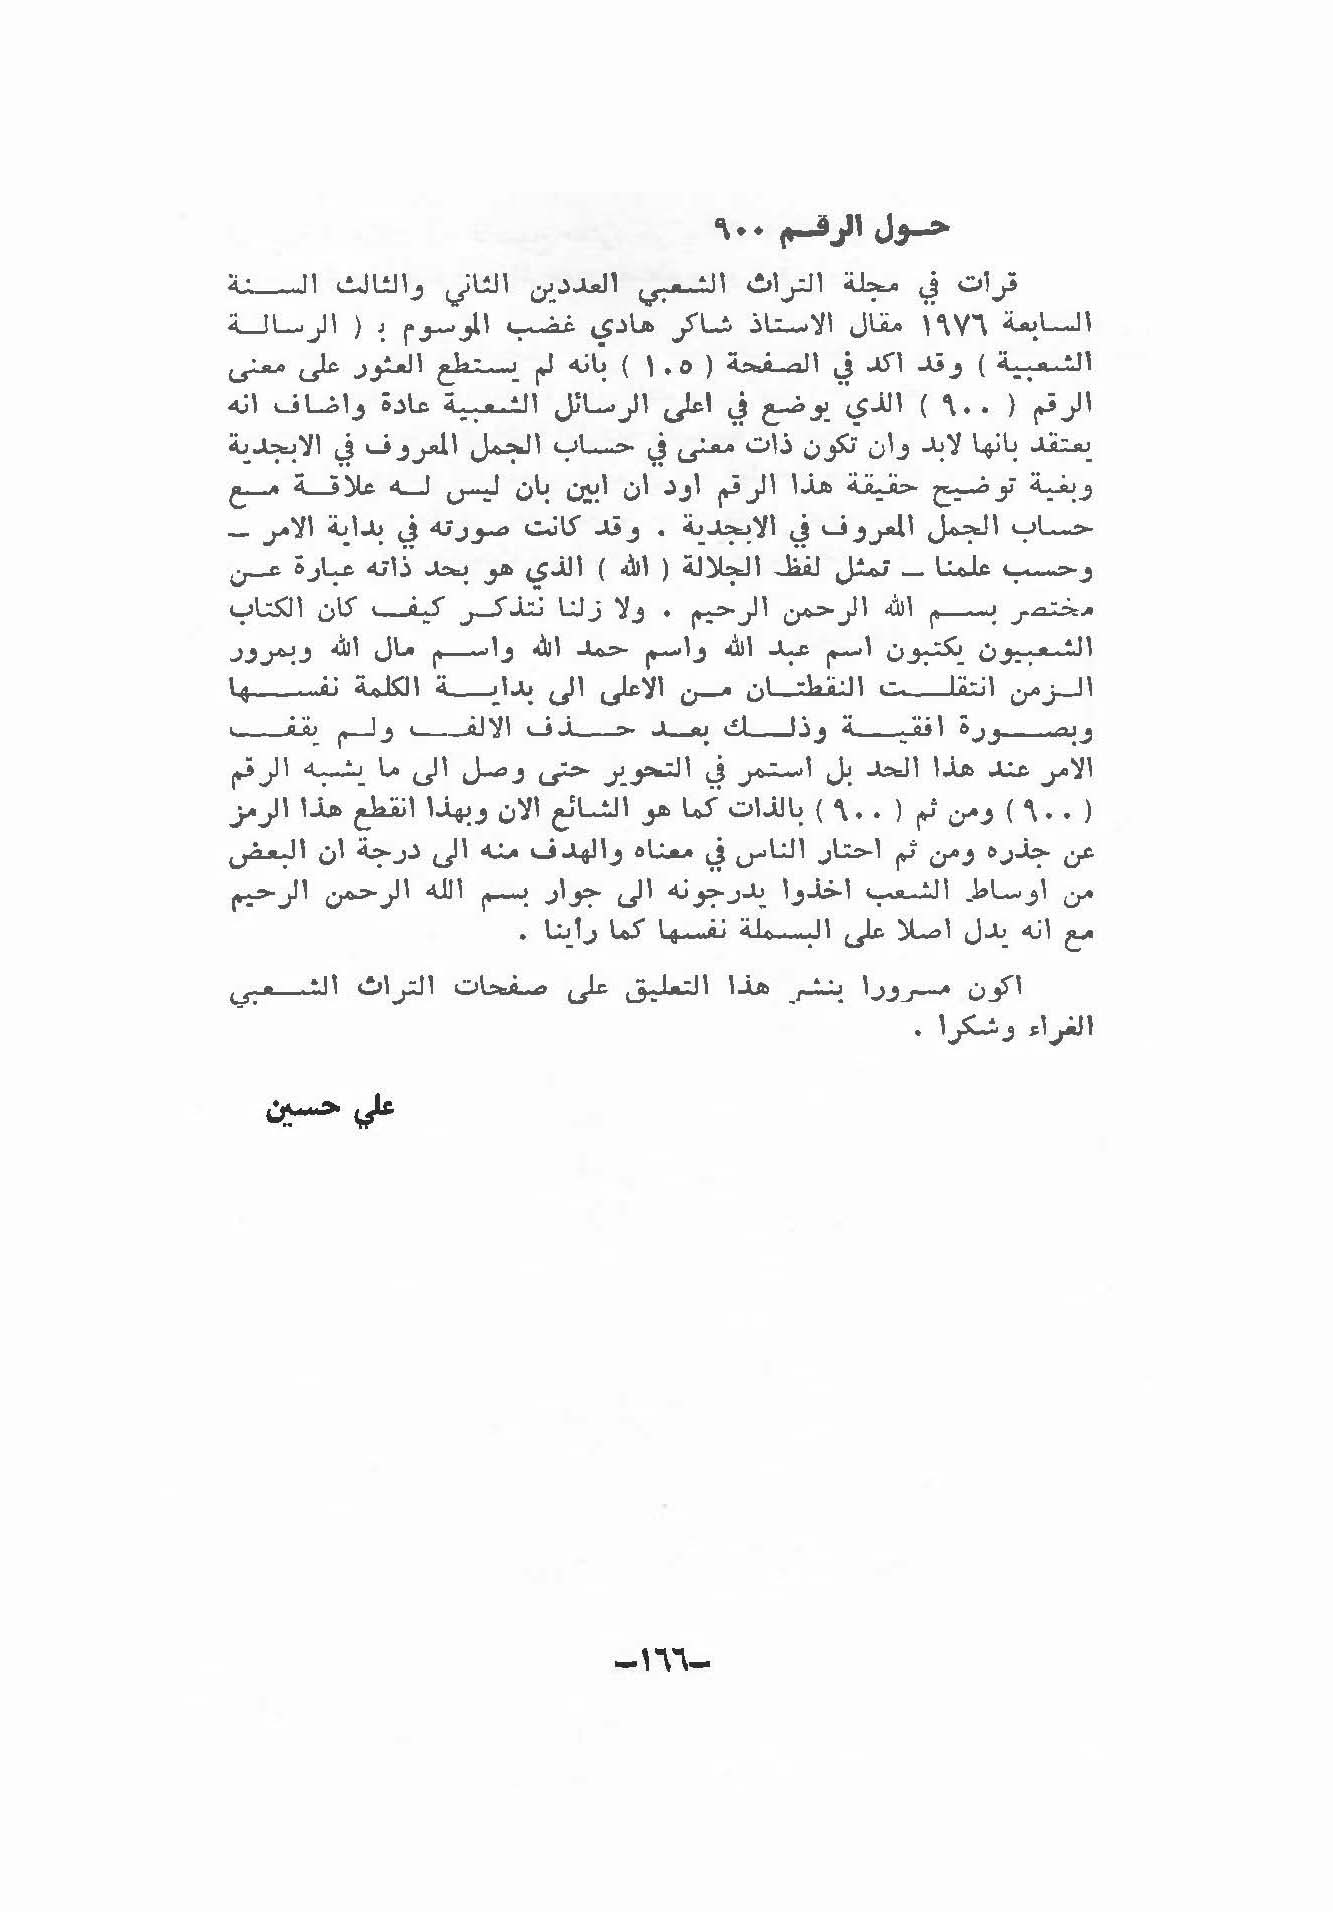 حول الرقم ٩٠٠
قرأت في مجلة التراث الشعبي العددين الثاني والثالث السنة
السابعة ١٩٧٦ مقال الاستاذ شاكر هادي غضب الموسوم بـ ( الرسالة
الشعبية ) وقد اكد في الصفحة ( ١٠٥ ) بانه لم يستطع العثور على معنى
الرقم ( ٩٠٠ ) الذي يوضع في اعلى الرسائل الشعبية عادة واضاف انه
يعتقد بانها لابد وان تكون ذات معنى في حساب الجمل المعروف في الابجدية
وبغية توضيح حقيقة هذا الرقم اود ان ابين بان ليس له علاقة مع
حساب الجمل المعروف في الابجدية . وقد كانت صورته في بداية الامر –
وحسب علمنا – تمثل لفظ الجلالة ( الله ) الذي هو بحد ذاته عبارة عن
مختصر بسم الله الرحمن الرحيم . ولا زلنا نتذكر كيف كان الكتاب
الشعبيون يكتبون اسم عبد الله واسم حمد الله واسم مال الله وبمرور
الزمن انتقلت النقطتان من الاعلى الى بداية الكلمة نفسها
وبصورة افقية وذلك بعد حذف الالف ولم يقف
الامر عند هذا الحد بل استمر في التحوير حتى وصل الى ما يشبه الرقم
( ٩٠٠ ) ومن ثم ( ٩٠٠ ) بالذات كما هو الشائع الان وبهذا انقطع هذا الرمز
عن جذره ومن ثم احتار الناس في معناه والهدف منه الى درجة ان البعض
من اوساط الشعب اخذوا يدرجونه الى جوار بسم الله الرحمن الرحيم
مع انه يدل اصلا على البسملة نفسها كما رأينا .
اكون مسرورا بنشر هذا التعليق على صفحات التراث الشعبي
الغراء وشكرا .
علي حسين
–١٦٦–